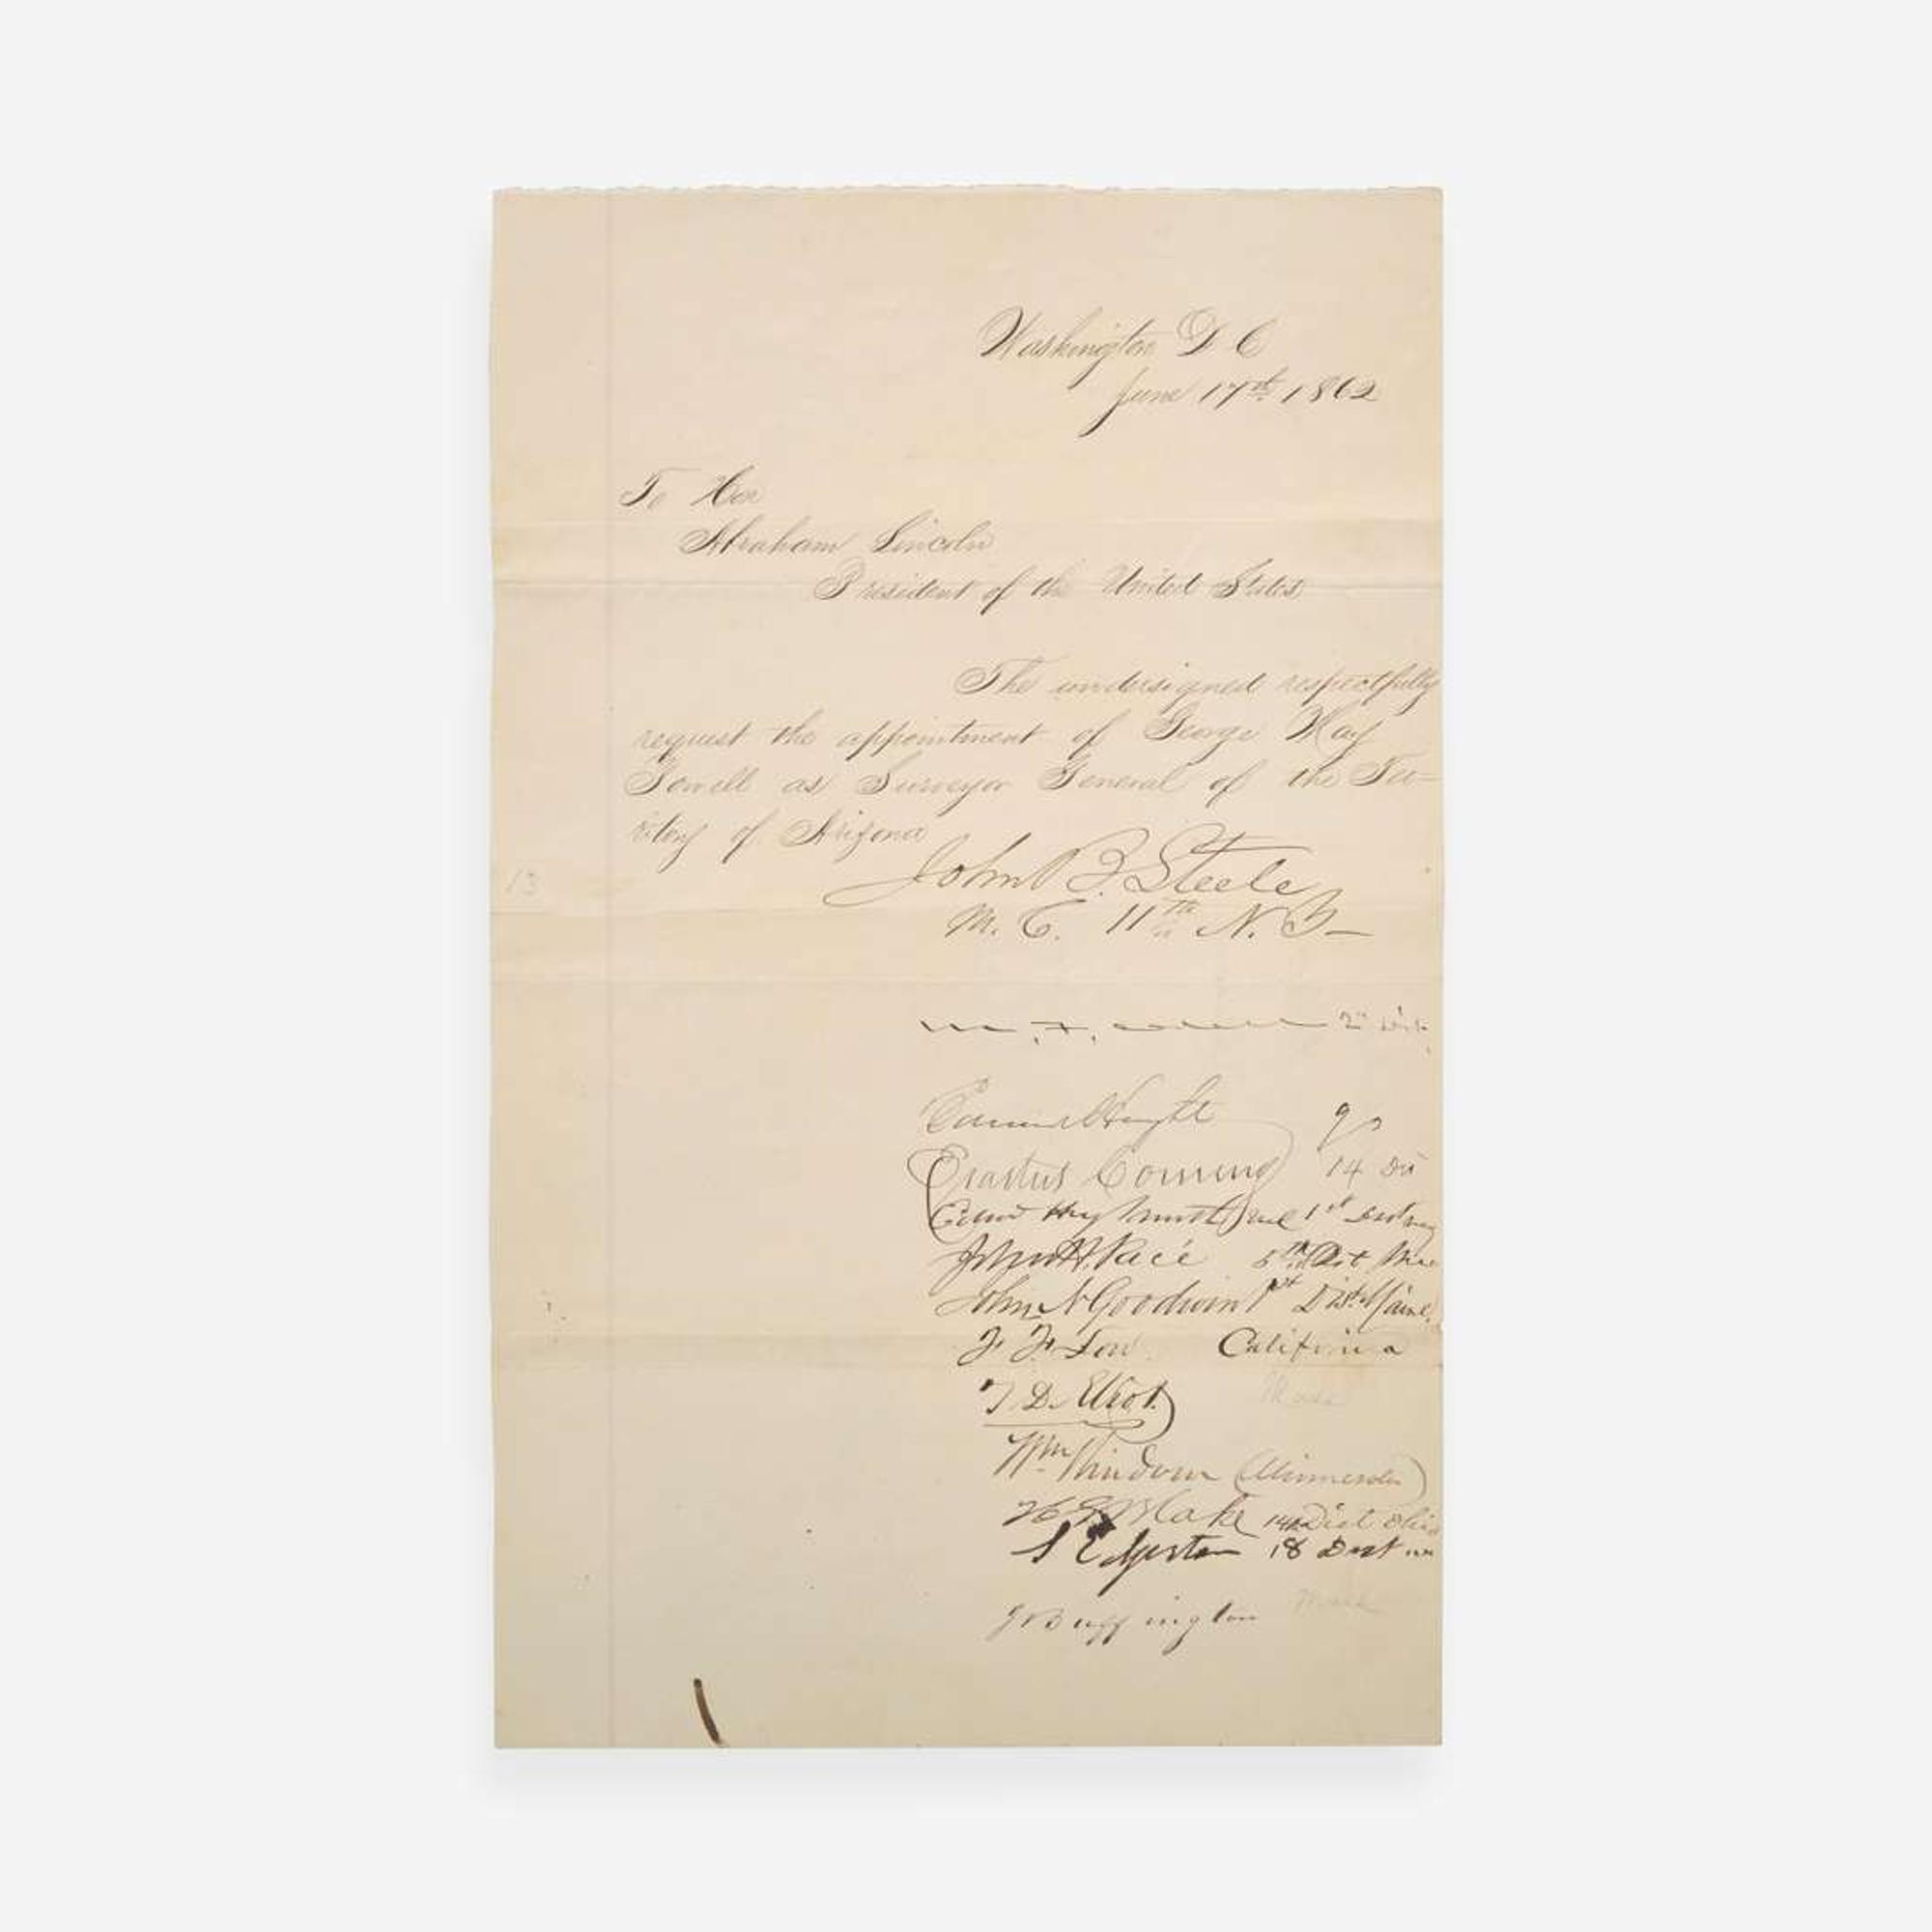 Washington D C
June 17th 1862
To Hon
Abraham Lincoln
President of the United States
The undersigned respectfully
request the appointment of George Way
Sowell as Surveyor General of the Ter=
ritory of Arizona
John B. Steele
M. C. 11th N. Y
13
2d Dist.
Edward Haight 9
Erastus Corning 14 Dis
1st
John H. Rice 5th Dist Me
John N Goodwin 1st Dist. Maine.
F. F. Low California
T D. Eliot. Mass
Wm Windom (Minnesota)
H G Blake 14th Dist Ohio
S Edgerton 18 Dist
J Buffington Mass